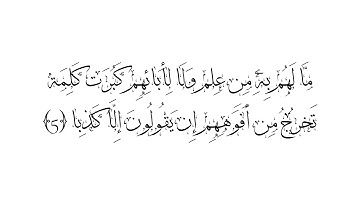 مَّا لَهُمْ بِهِۦ مِنْ عِلْمٍ وَلَا لِأٓبَآئِهِمْ كَبُرَتْ كَلِمَةً
تَخْرُجُ مِنْ أَفْوَٰهِهِمْ إِن يَقُولُونَ إِلَّا كَذِبًا ﴿5﴾